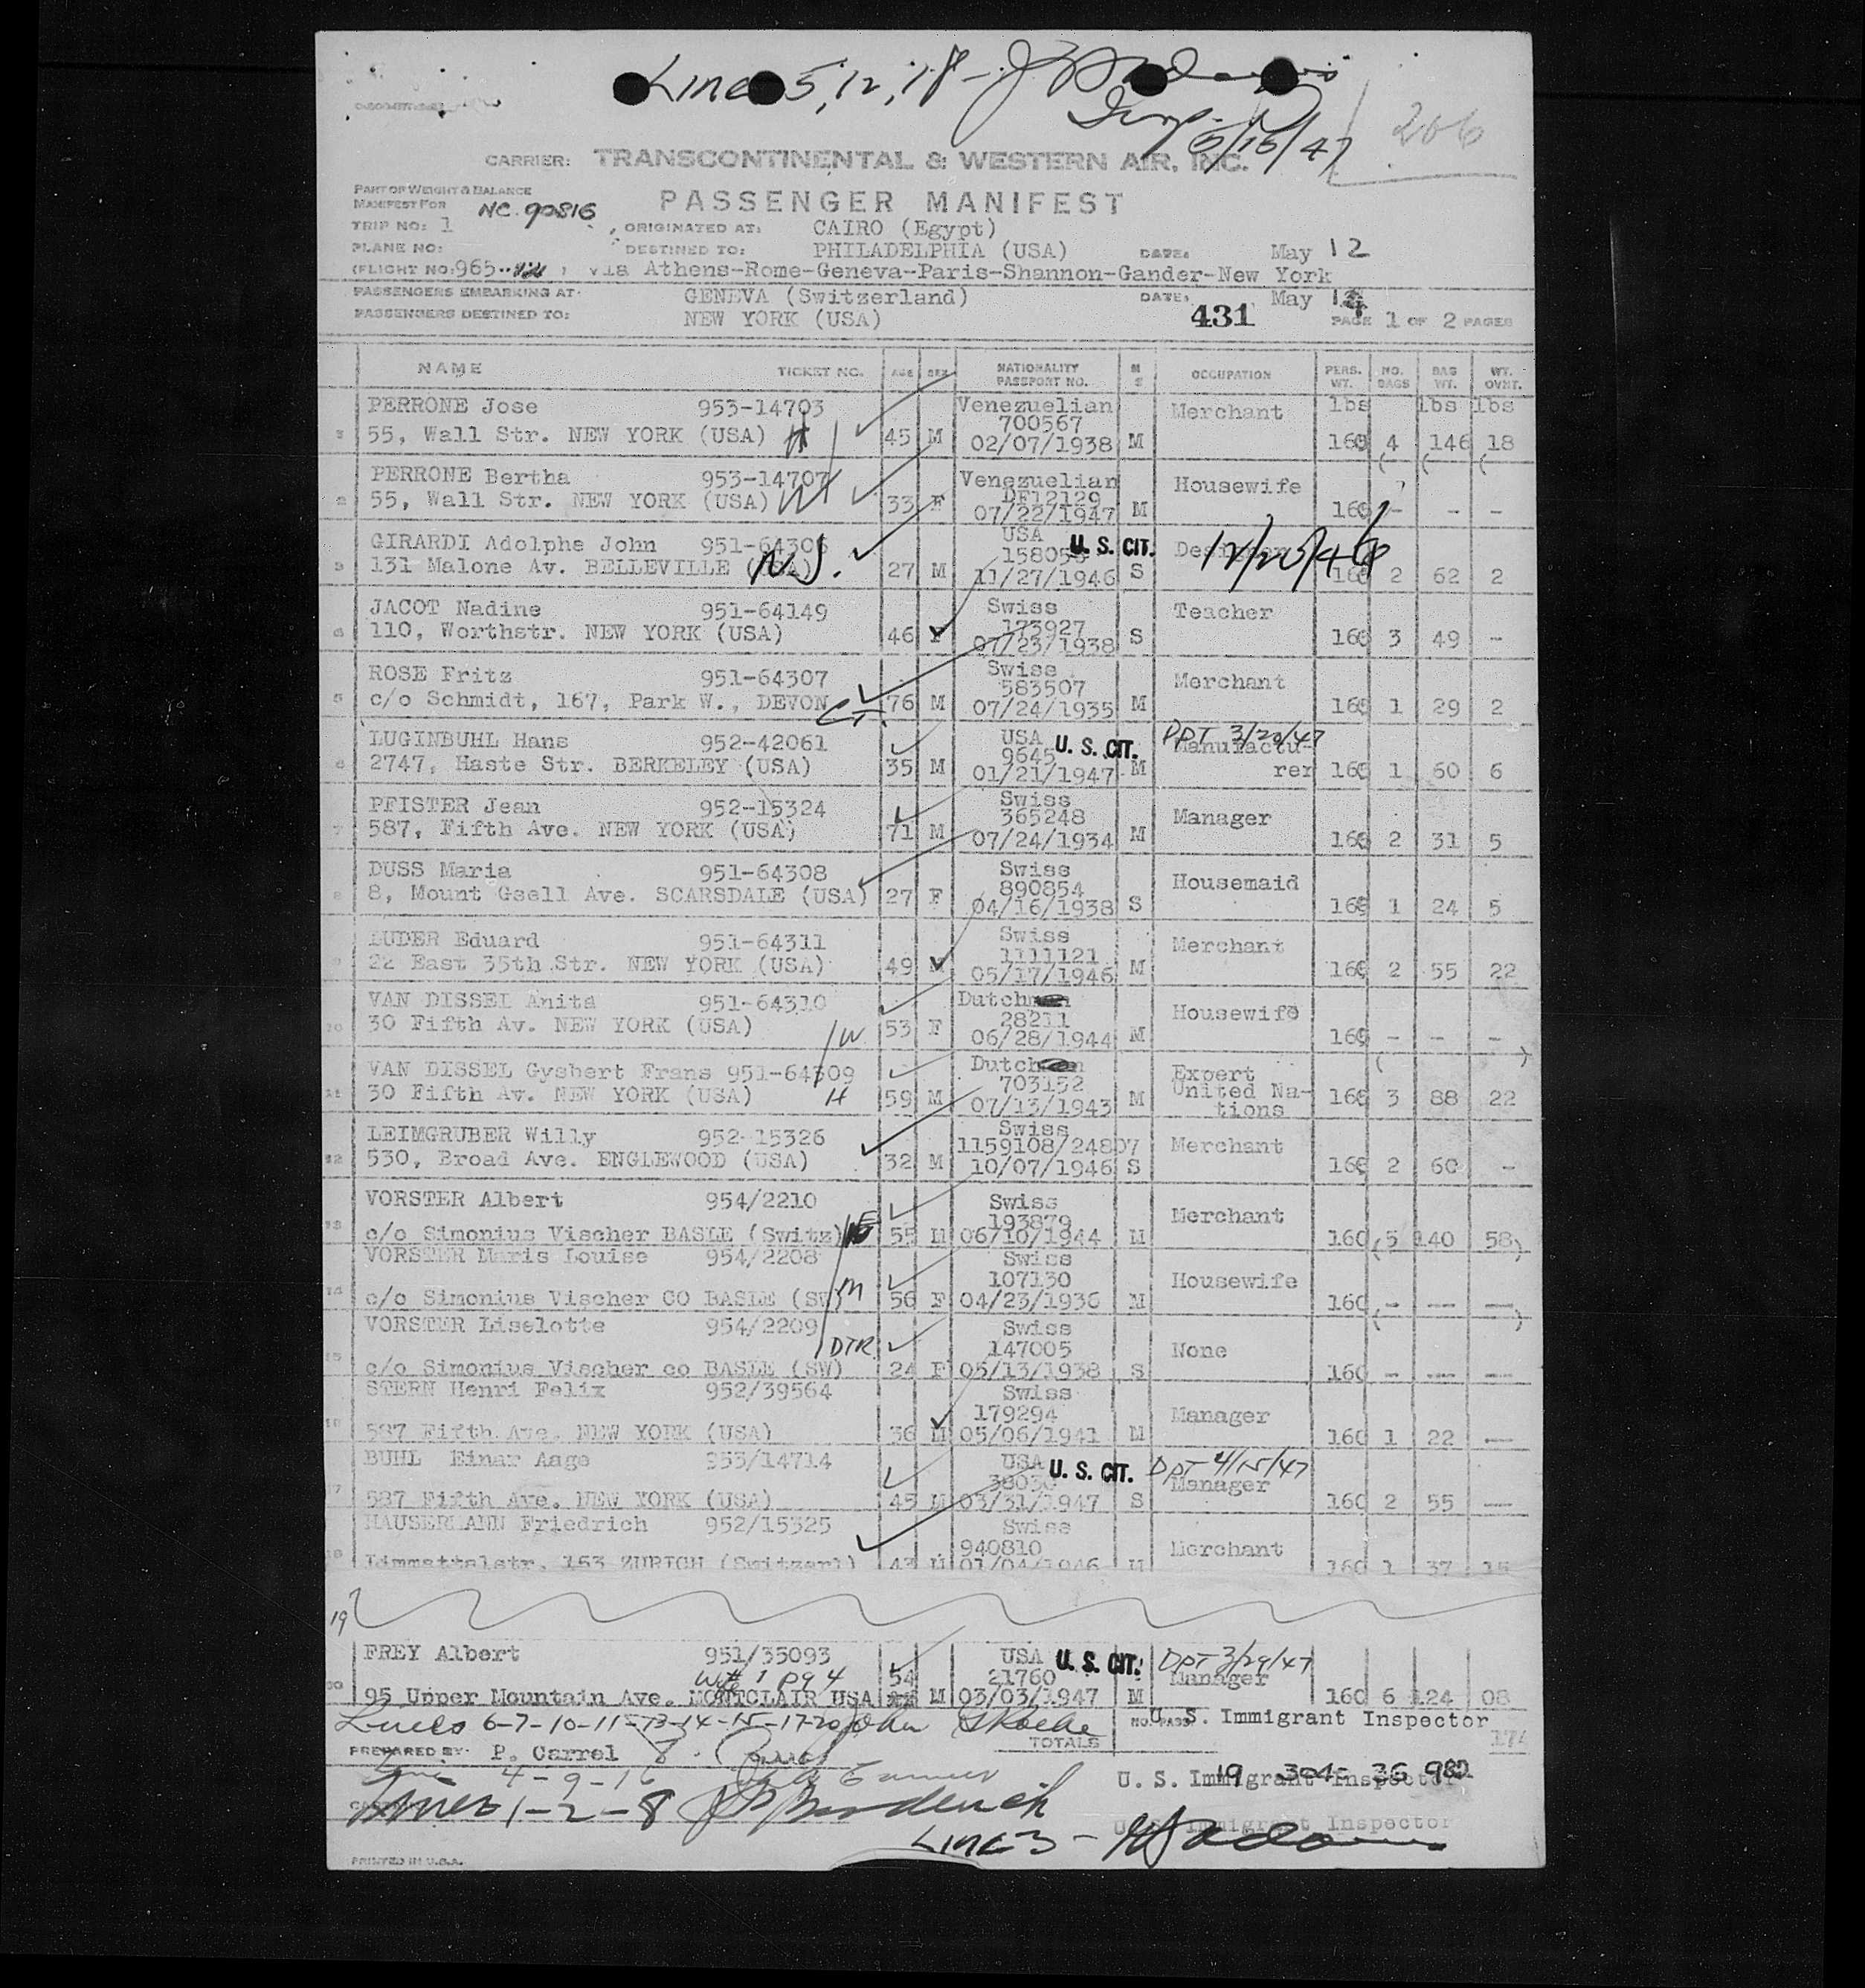 Lines 5, 12, 18 -
Insp.
5/15/47
206
CARRIER: TRANSCONTINENTAL & WESTERN AIR, INC.
PART OF WEIGHT & BALANCE
MANIFEST FOR NC 90816
PASSENGER MANIFEST
TRIP NO: 1 ORIGINATED AT: CAIRO (Egypt)
PLANE NO: DESTINED TO: PHILADELPHIA (USA) DATE: May 12
(FLIGHT NO: 965 ) via Athens-Rome-Geneva-Paris-Shannon-Gander-New York
PASSENGERS EMBARKING AT: GENEVA (Switzerland) DATE: May 14
PASSENGERS DESTINED TO: NEW YORK (USA) 431 PAGE 1 OF 2 PAGES
NAME TICKET NO. AGE SEX NATIONALITY PASSPORT NO. M S OCCUPATION PERS. WT. NO. BAGS BAG WT. WT. OVWT.
PERRONE Jose 953-14703 Venezuelian Merchant lbs lbs lbs
700567
55, Wall Str. NEW YORK (USA) H 45 M 02/07/1938 M 160 4 146 18
PERRONE Bertha 953-14707 Venezuelian Housewife
DF12129
2 55, Wall Str. NEW YORK (USA) W 33 F 07/22/1947 M 160 - - -
GIRARDI Adolphe John 951-64306 USA U. S. CIT. 12/20/46
3 131 Malone Av. BELLEVILLE N.J. 27 M 11/27/1946 S 160 2 62 2
JACOT Nadine 951-64149 Swiss Teacher
173927
110, Worthstr. NEW YORK (USA) 46 F 07/23/1938 S 160 3 49 -
ROSE Fritz 951-64307 Swiss Merchant
583507
5 c/o Schmidt, 167, Park W., DEVON CT. 76 M 07/24/1935 M 160 1 29 2
LUGINBUHL Hans 952-42061 USA U. S. CIT. DPT 3/20/47
9645 Manufactu-
6 2747, Haste Str. BERKELEY (USA) 35 M 01/21/1947 M rer 160 1 60 6
PFISTER Jean 952-15324 Swiss Manager
365248
7 587, Fifth Ave. NEW YORK (USA) 71 M 07/24/1934 M 160 2 31 5
DUSS Maria 951-64308 Swiss Housemaid
890854
8 8, Mount Gsell Ave. SCARSDALE (USA) 27 F 04/16/1938 S 160 1 24 5
LUDER Eduard 951-64311 Swiss Merchant
1111121
9 22 East 35th Str. NEW YORK (USA) 49 M 05/17/1946 M 160 2 55 22
VAN DISSEL Anita 951-64310 Dutch Housewife
28211
10 30 Fifth Av. NEW YORK (USA) W 53 F 06/28/1944 M 160 - - -
VAN DISSEL Gysbert Frans 951-64309 Dutch Expert
703152 United Na-
11 30 Fifth Av. NEW YORK (USA) H 59 M 07/13/1943 M tions 160 3 88 22
LEIMGRUBER Willy 952-15326 Swiss Merchant
1159108/24807
12 530, Broad Ave. ENGLEWOOD (USA) 32 M 10/07/1946 S 160 2 60 -
VORSTER Albert 954/2210 Swiss Merchant
193879
13 c/o Simonius Vischer BASLE (Switz) 55 M 06/10/1944 M 160 5 140 58
VORSTER Maris Louise 954/2208 Swiss Housewife
107130
14 c/o Simonius Vischer CO BASLE (SW) M 56 F 04/23/1936 M 160 - --- ---
VORSTER Liselotte 954/2209 Swiss None
DTR. 147005
15 c/o Simonius Vischer co BASLE (SW) 24 F 05/13/1938 S 160 - --- ---
STERN Henri Felix 952/39564 Swiss Manager
179294
16 587 Fifth Ave. NEW YORK (USA) 36 M 05/06/1941 M 160 1 22 ---
BUHL Einar Aage 953/14714 USA U. S. CIT. DPT 4/15/47
Manager
17 587 Fifth Ave. NEW YORK (USA) 45 M 03/31/1947 S 160 2 55 ---
HAUSERMANN Friedrich 952/15325 Swiss Merchant
940810
18 Limmattalstr. 163 ZURICH (Switzerl) 43 M 01/04/1946 M 160 1 37 15
19
FREY Albert 951/35093 USA U. S. CIT. DPT 3/29/47
Wife # 1 pg 4 54 21760 Manager
20 95 Upper Mountain Ave. MONTCLAIR USA M 03/03/1947 M 160 6 124 08
Lines 6-7-10-11-13-14-15-17-20 John NO. PASS. U. S. Immigrant Inspector
TOTALS 174
PREPARED BY: P. Carrel
4-9-16 U. S. Immigrant Inspector 19
Lines 1-2-8
U. S. Immigrant Inspector
LINE 3 -
PRINTED IN U.S.A.